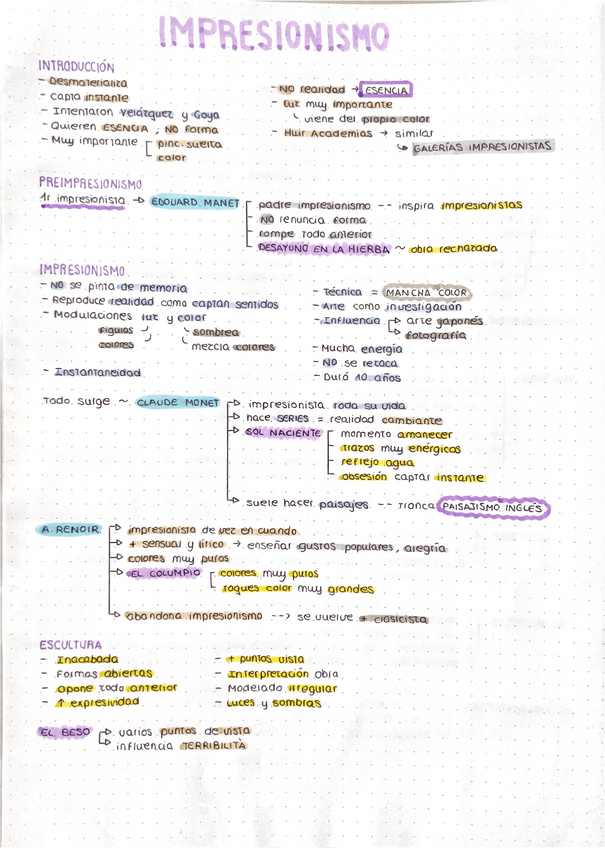 IMPRESIONISMO
INTRODUCCIÓN
- Desmaterializa
- Capta instante
- Intentaron Velázquez y Goya
- Quieren ESENCIA, NO forma
- Muy importante pinc. suelta
color
- NO realidad → ESENCIA
- Luz muy importante
viene del propio color
- Huir Academias → similar
GALERÍAS IMPRESIONISTAS
PREIMPRESIONISMO
1r impresionista → EDOUARD MANET
padre impresionismo -- inspira impresionistas
NO renuncia forma
rompe todo anterior
DESAYUNO EN LA HIERBA ~ obra rechazada
IMPRESIONISMO
- NO se pinta de memoria
- Reproduce realidad como captan sentidos
- Modulaciones luz y color
figuras
colores
sombrea
mezcla colores
- Instantaneidad
- Técnica = MANCHA COLOR
- Arte como investigación
- Influencia → arte japonés
→ fotografía
- Mucha energía
- NO se retoca
- Duró 10 años
Todo surge ~ CLAUDE MONET
impresionista toda su vida
hace SERIES = realidad cambiante
SOL NACIENTE
momento amanecer
trazos muy enérgicos
reflejo agua
obsesión captar instante
suele hacer paisajes -- tronca PAISAJISMO INGLÉS
A. RENOIR
impresionista de vez en cuando
+ sensual y lírico → enseñar gustos populares, alegría
colores muy puros
EL COLUMPIO
colores muy puros
toques color muy grandes
abandona impresionismo --> se vuelve + clasicista
ESCULTURA
- Inacabada
- Formas abiertas
- Opone todo anterior
- ↑ expresividad
- + puntos vista
- Interpretación obra
- Modelado irregular
- Luces y sombras
EL BESO → varios puntos de vista
→ influencia TERRIBILITÀ